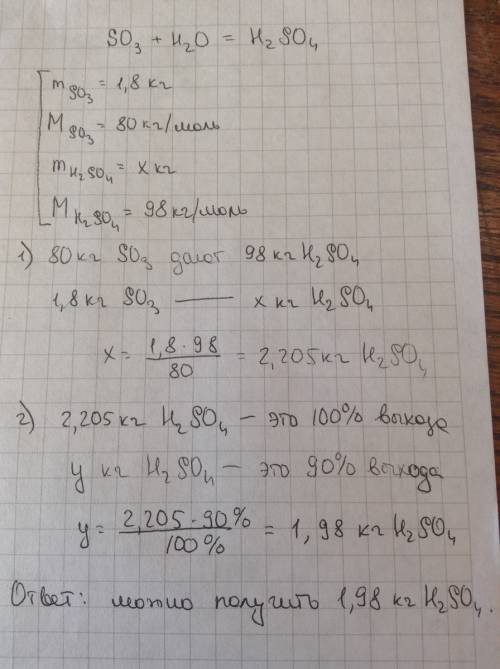 SO₃ + H₂O = H₂SO₄
m SO₃ = 1,8 кг
M SO₃ = 80 кг/моль
m H₂SO₄ = x кг
M H₂SO₄ = 98 кг/моль
1) 80 кг SO₃ дают 98 кг H₂SO₄
1,8 кг SO₃ — x кг H₂SO₄
x = 1,8 · 98 / 80 = 2,205 кг H₂SO₄
2) 2,205 кг H₂SO₄ – это 100% выхода
y кг H₂SO₄ – это 90% выхода
y = 2,205 · 90% / 100% = 1,98 кг H₂SO₄
Ответ: можно получить 1,98 кг H₂SO₄.